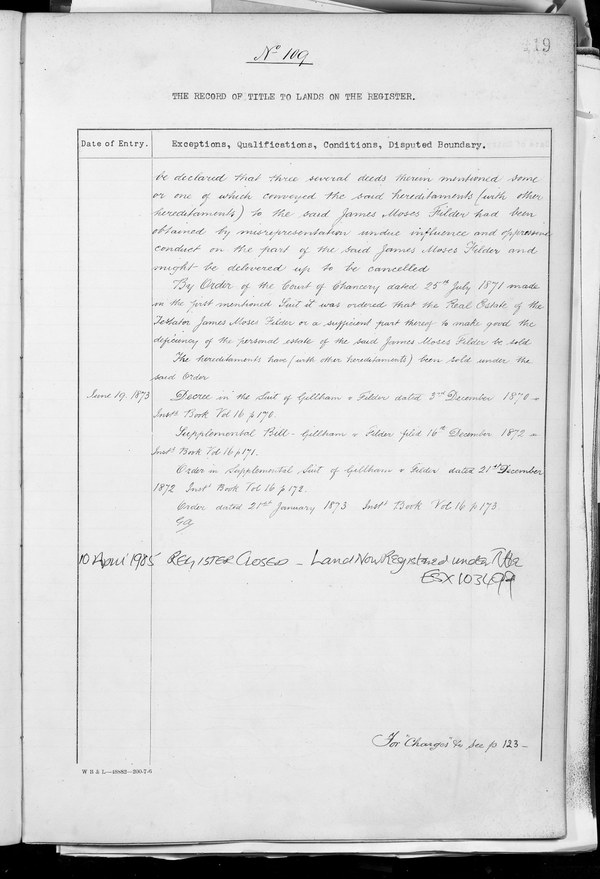 119
No 109
THE RECORD OF TITLE TO LANDS ON THE REGISTER.
Date of Entry.
Exceptions, Qualifications, Conditions, Disputed Boundary.
be declared that three several deeds therein mentioned some
or one of which conveyed the said hereditaments (with other
hereditaments) to the said James Moses Filder had been
obtained by misrepresentation undue influence and oppressive
conduct on the part of the said James Moses Filder and
might be delivered up to be cancelled
By Order of the Court of Chancery dated 25th July 1871 made
in the first mentioned Suit it was ordered that the Real Estate of the
Testator James Moses Filder or a sufficient part thereof to make good the
deficiency of the personal estate of the said James Moses Filder be sold
The hereditaments have (with other hereditaments) been sold under the
said Order
June 19. 1873
Decree in the Suit of Gellham v Filder dated 2nd December 1870 -
Insts Book Vol 16 p 170.
Supplemental Bill - Gellham v Filder filed 16th December 1872 -
Insts Book Vol 16 p 171.
Order in Supplemental Suit of Gellham v Filder dated 21st December
1872 Insts Book Vol 16 p 172.
Order dated 21st January 1873 Insts Book Vol 16 p 173.
10 April 1985 REGISTER CLOSED - Land Now Registered under Title
For "Charges" &c see p 123 -
W B & L.—49882—200-7-6